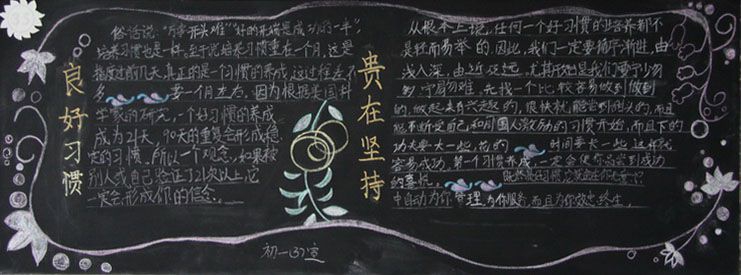 良好习惯
俗话说："万事开头难""好的开端是成功的一半",
培养习惯也是一样。至于说培养习惯重在一个月,这是
指度过前几天,真正的是一个习惯的养成,这过程差不
多要一个月左右。因为根据美国科
学家的研究,一个好习惯的养成
成为21天,90天的重复会形成稳
定的习惯。所以一个观念,如果被
别人或自己验证了21次以上,它
一定会形成你的信念。
贵在坚持
从根本上说,任何一个好习惯的培养都不
是轻而易举的,因此,我们一定要循序渐进,由
浅入深,由近及远,
先找一个比较容易做到
的,做起来有兴趣的,很快就能尝到甜头的,而且
能不断受自己和周围人激励的习惯开始,而且下的
功夫要大一些,花的时间要长一些,这样就
容易成功,第一个习惯养成一定会使你品尝到成功
的喜悦。
中自动为你管理,为你服务,而且为你效忠终生。
初一